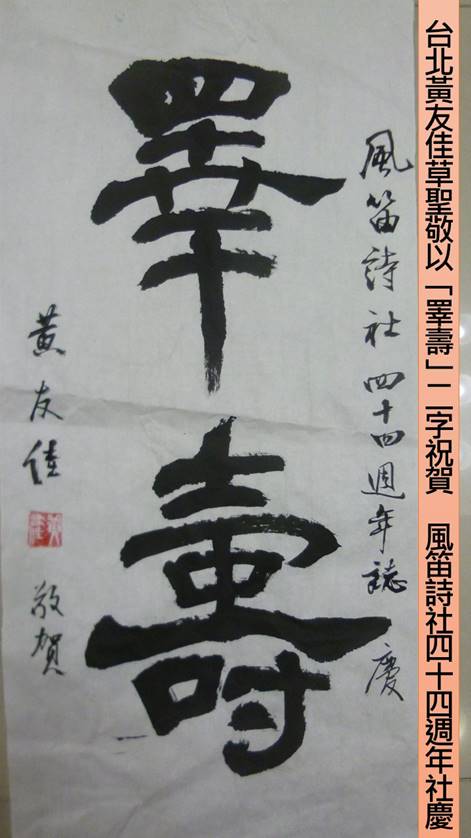 台北黃友佳草聖敬以「睪壽」二字祝賀　風笛詩社四十四週年社慶
風笛詩社四十四週年誌慶
睪壽
黃友佳
敬賀